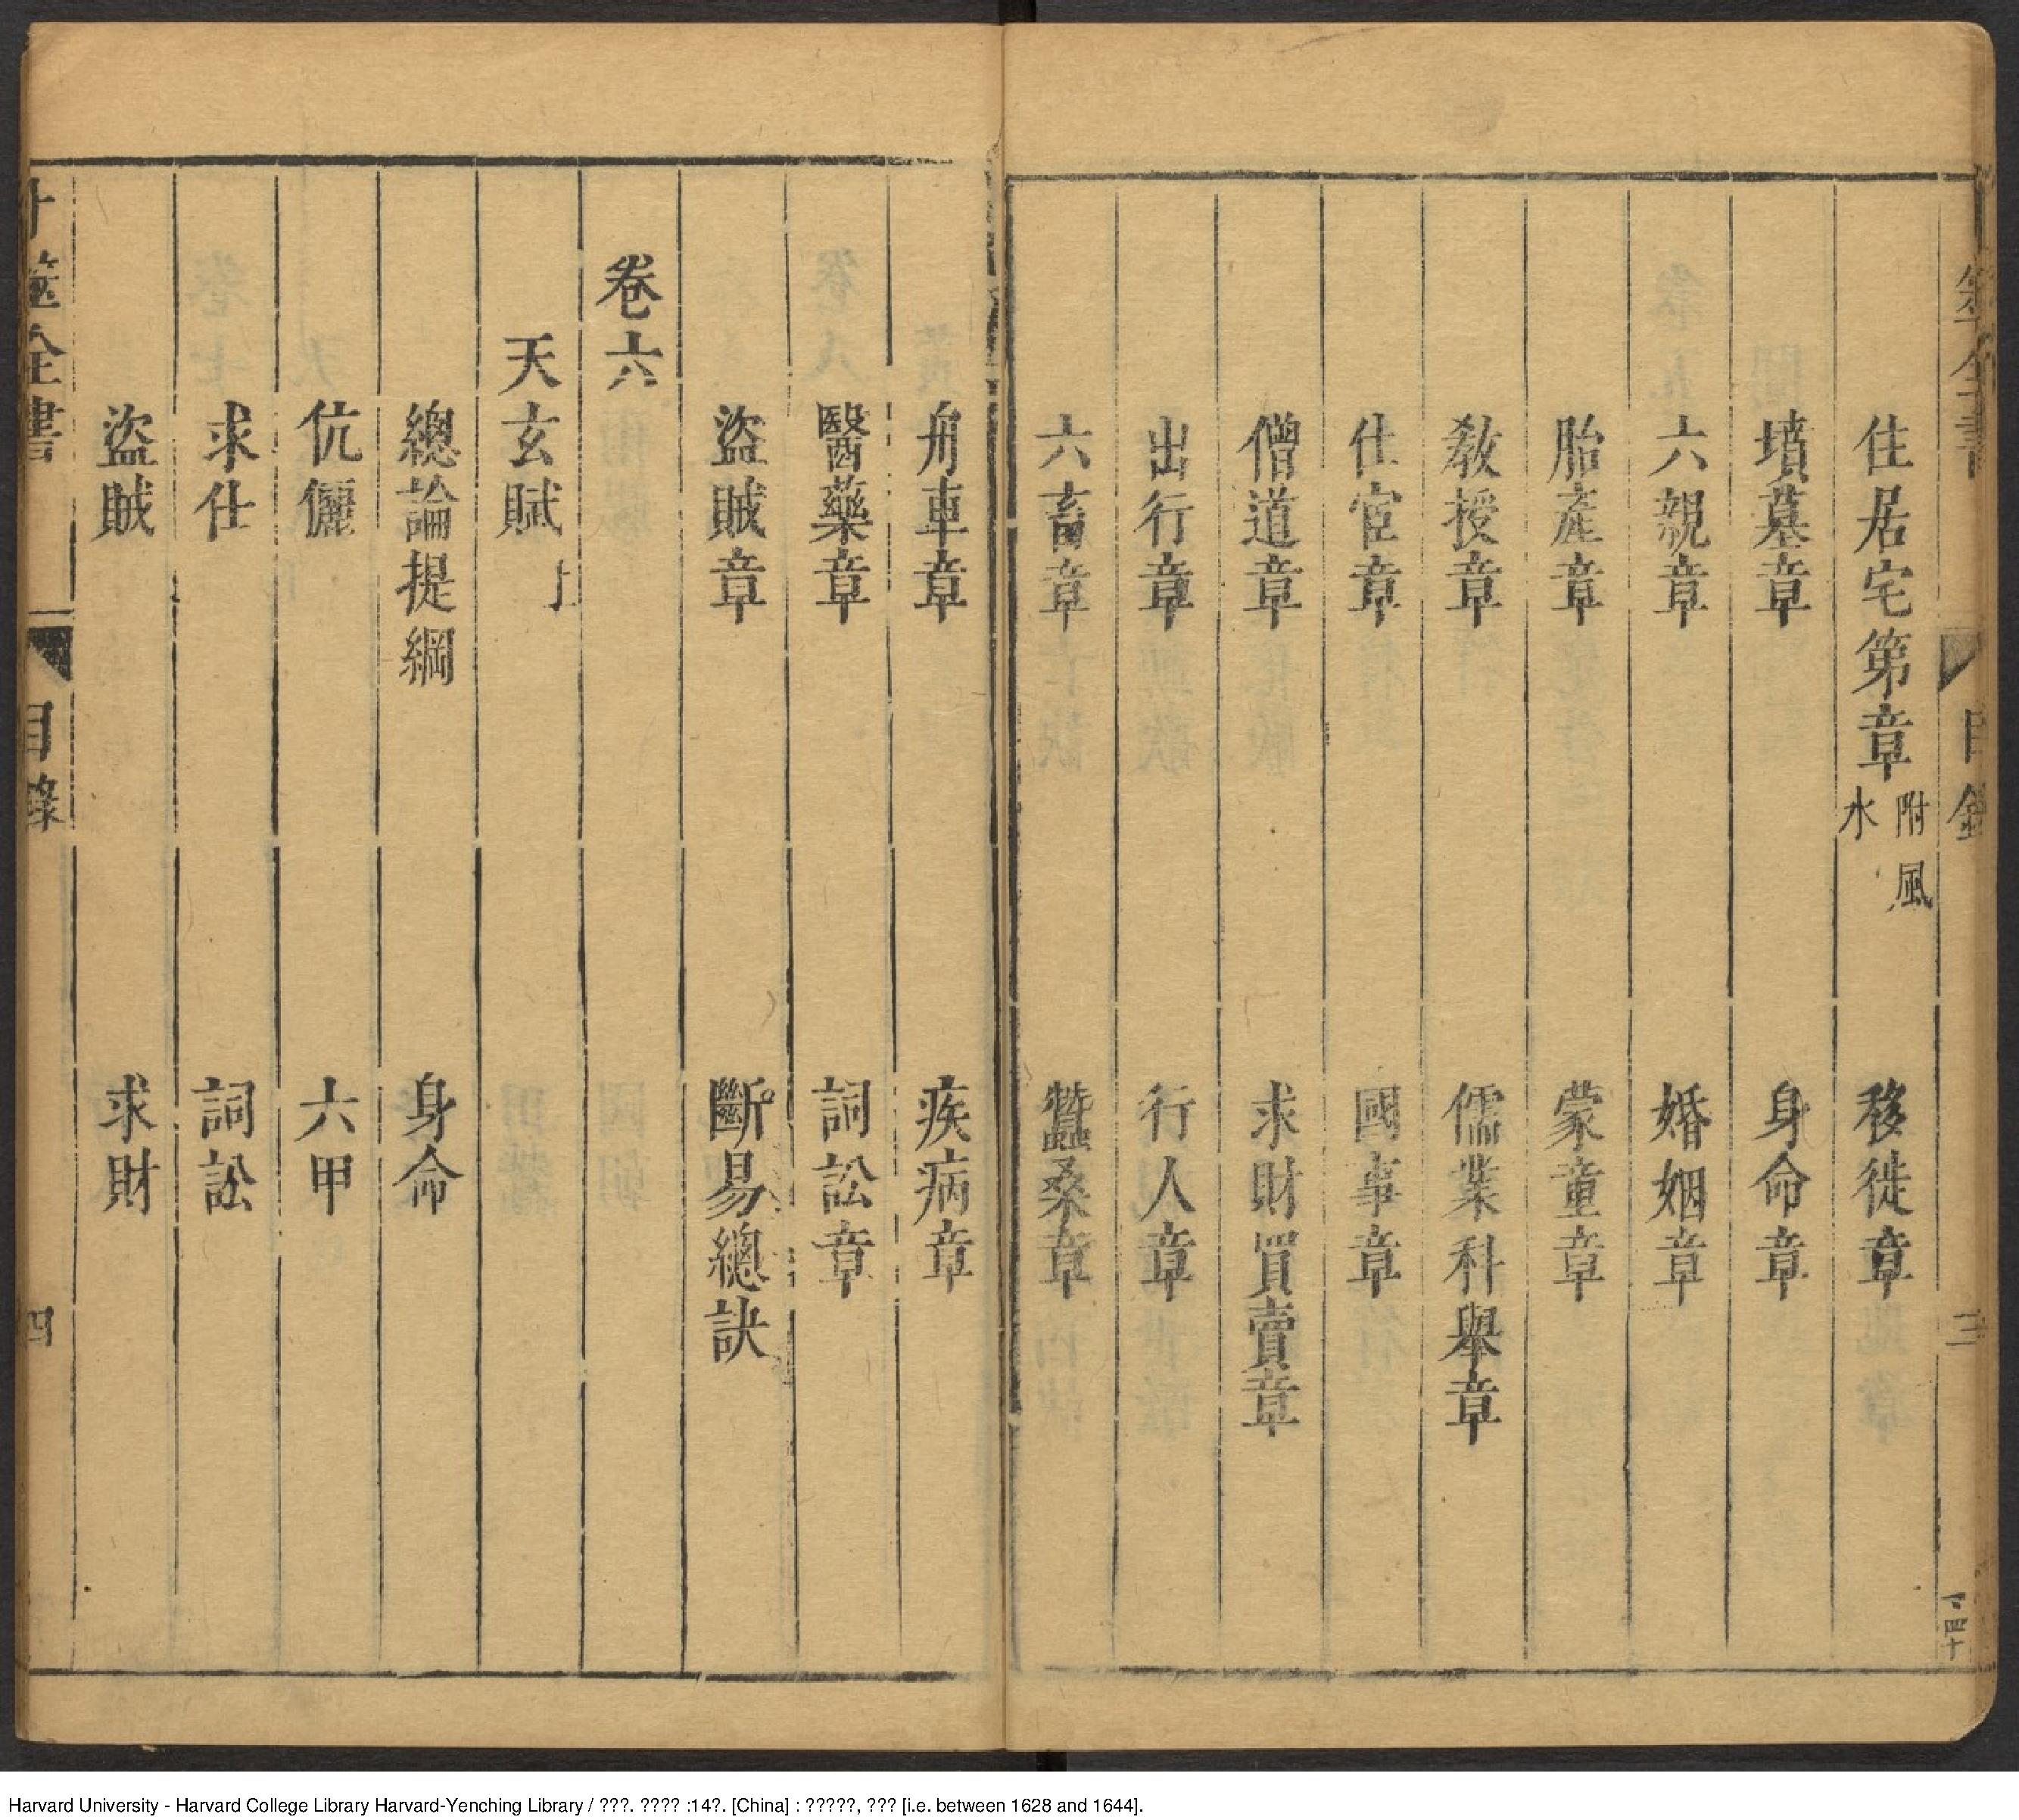 住居宅第章 附風水 移徙章
墳墓章 身命章
六親章 婚姻章
胎產章 蒙童章
教授章 儒業科舉章
仕宦章 國事章
僧道章 求財買賣章
出行章 行人章
六畜章 蠶桑章
舟車章 疾病章
醫藥章 詞訟章
盜賊章 斷易總訣
卷六
天玄賦上
總論提綱 身命
伉儷 六甲
求仕 詞訟
盜賊 求財
卜筮全書 目錄 四
Harvard University - Harvard College Library Harvard-Yenching Library / ???. ???? :14?. [China] : ?????, ??? [i.e. between 1628 and 1644].